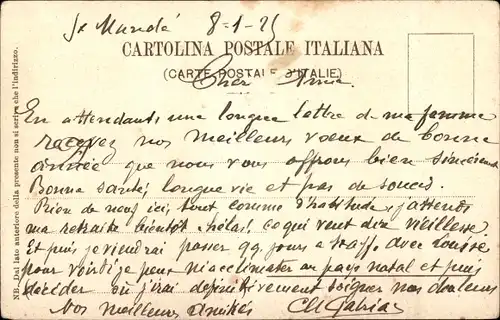 St Mandé 8-1-25
CARTOLINA POSTALE ITALIANA
(CARTE POSTALE D'ITALIE)
Cher Amie
En attendants une longue lettre de ma femme
recevez nos meilleurs voeux de bonne
année que nous vous offrons bien sincèrement
Bonne santé, longue vie et pas de soucis.
Rien de neuf ici, tout comme d'habitude, j'attends
ma retraite bientôt. hélas, ce qui veut dire vieillesse.
Et puis je viendrai passer qq. jours a avec Louise
pour voir si je peux m'acclimater au pays natal et puis
décider où j'irai définitivement soigner nos douleurs
Nos meilleurs amitiés
NB. Dal lato anteriore della presente non si scriva che l'indirizzo.